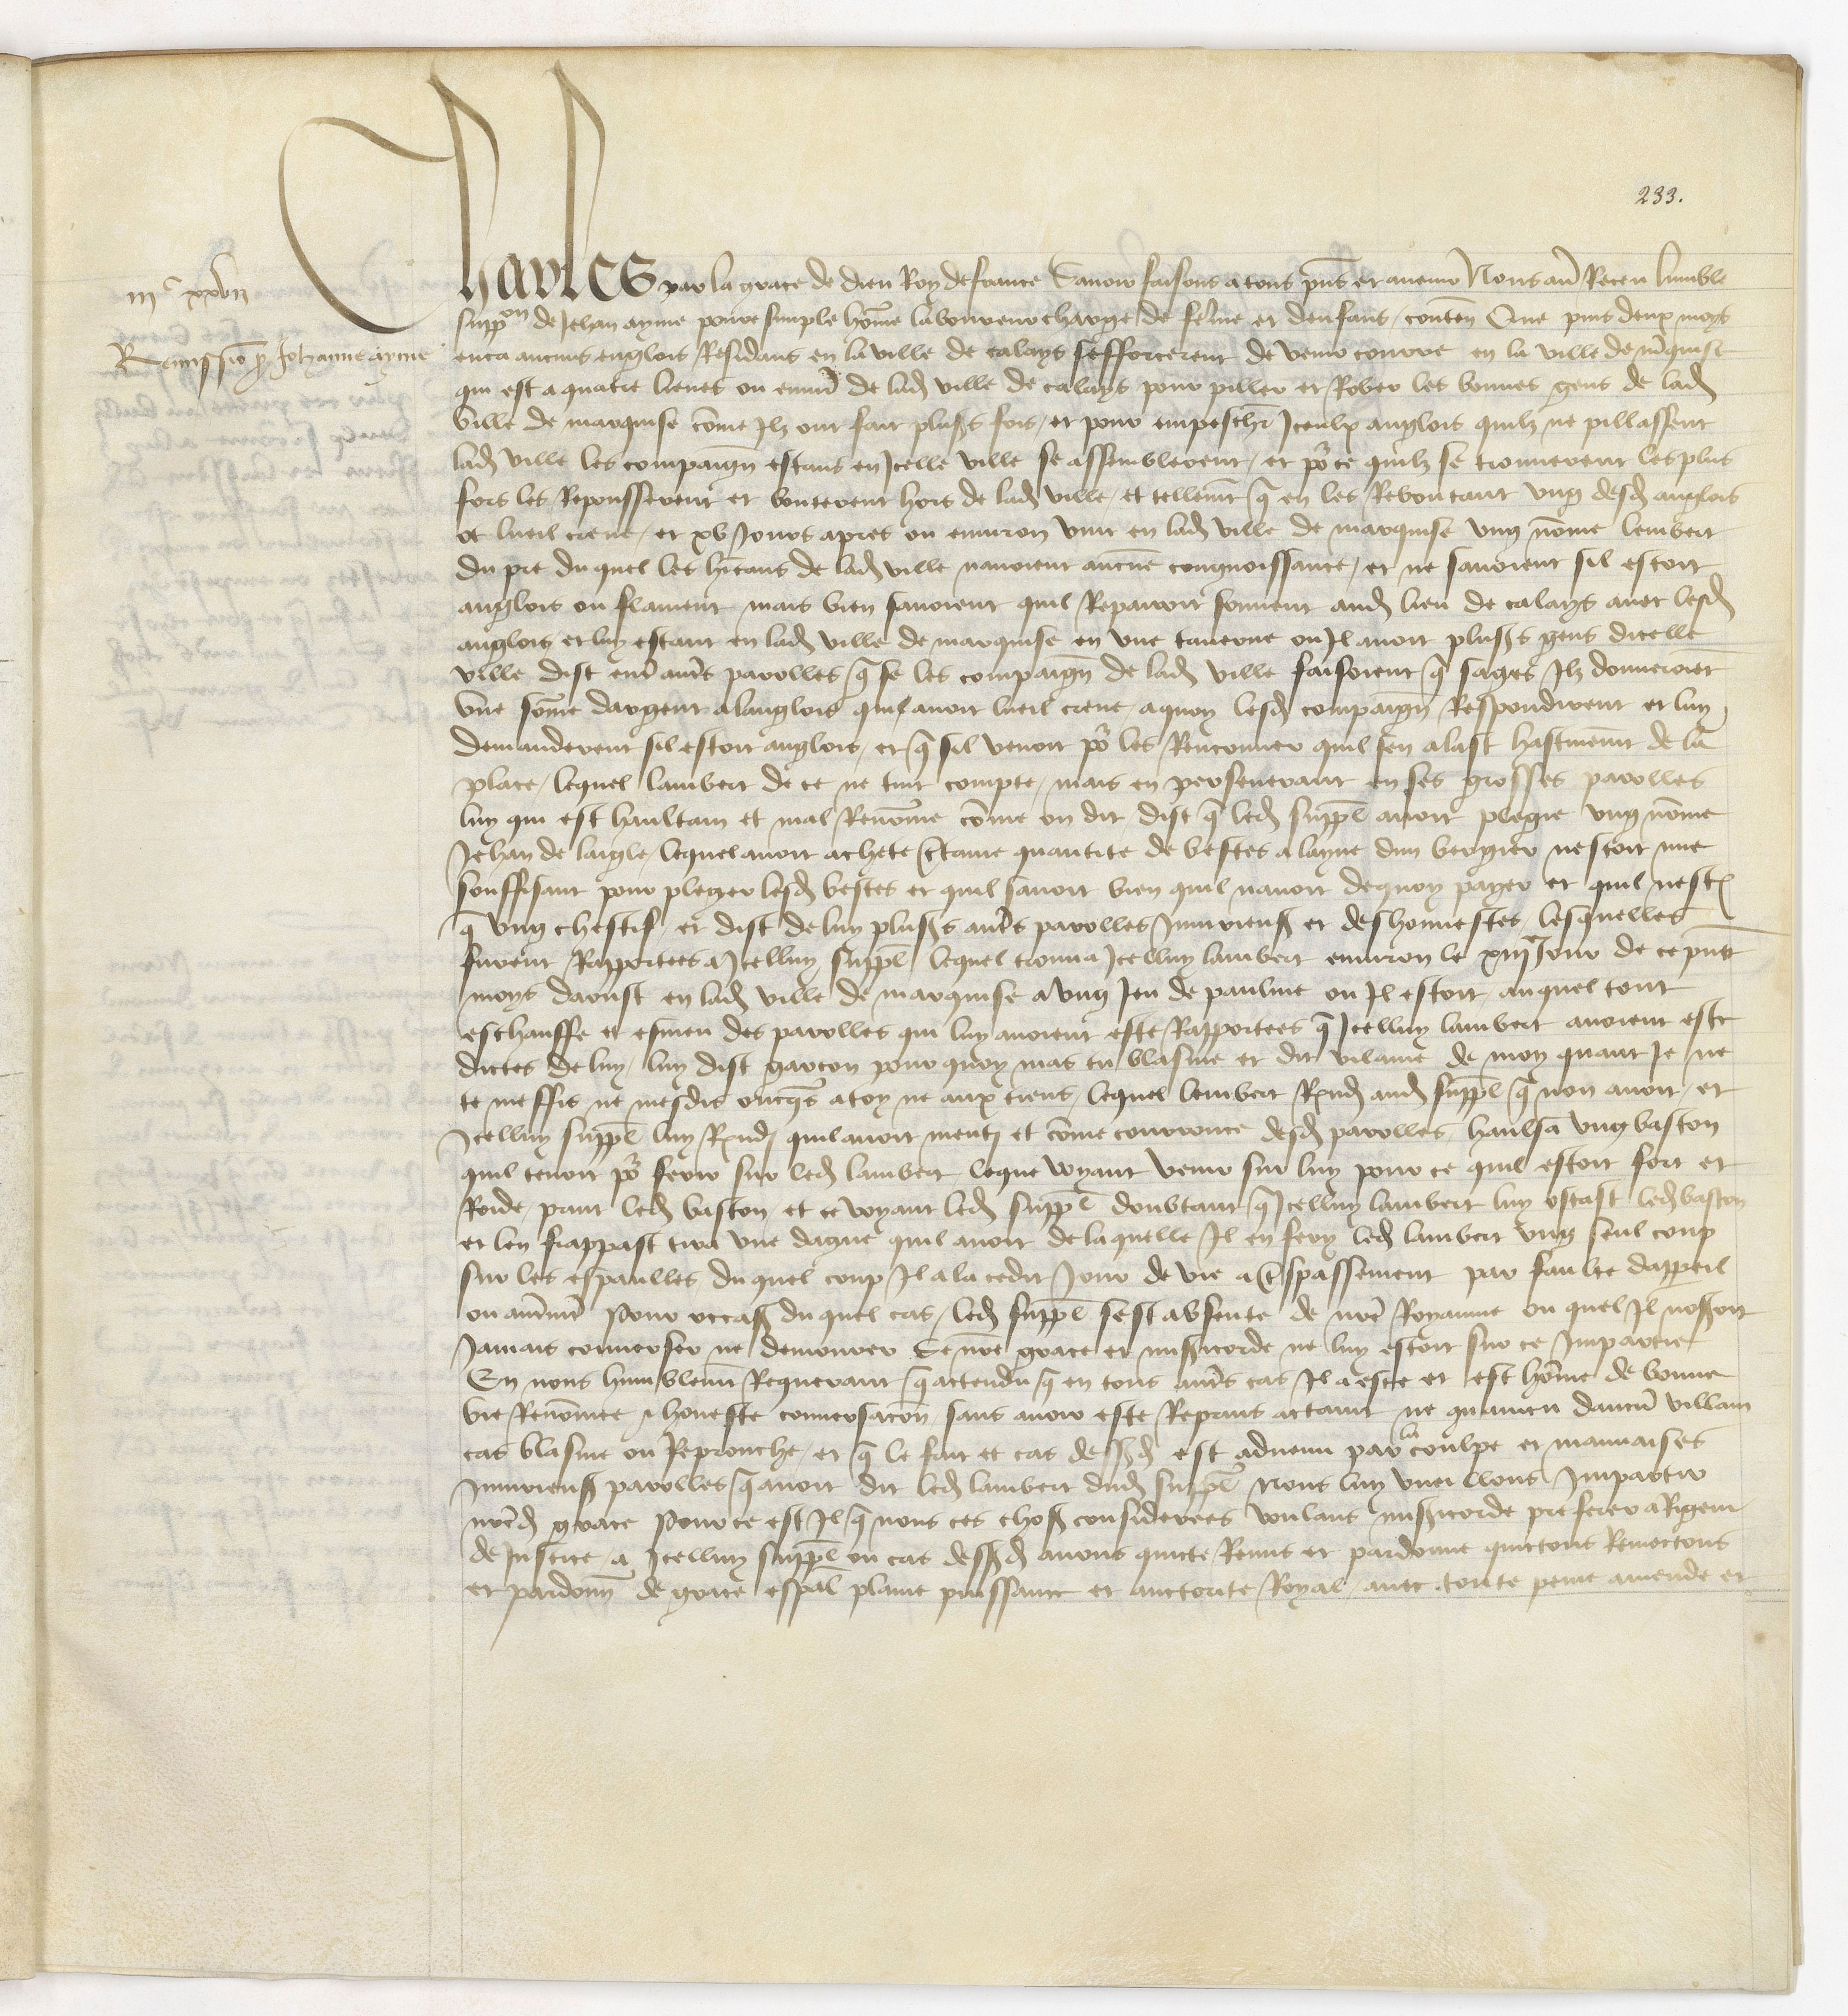 233.
iiic xxvii
Remissio pro Johanne ayme
Charles par la grace de dieu Roy de france Savoir faisons a tous pns et avenir Nous avr Receu lumble
suppon de Jehan ayme povre simple home laboureur charge de feme et denfans conten Que puis deux moys
enca aucuns englois Residans en la ville de calays sefforcerent de venir courre en la ville de mrquise
qui est a quatre lieues ou enviro de lad ville de calays pour piller et Rober les bonnes gens de lad
ville de marquise come Ilz ont fait pluss fois et pour empescher Iceulx anglois quilz ne pillassent
lad ville les compaign estans en Icelle ville se assemblerent et pour ce quilz se trouverent les plus
fors les Repousserent et bouterent hors de lad ville et tellemt q en les Reboutant ung desd anglois
ot lueil creve et xv Jours apres ou environ vint en lad ville de marquise ung nome lembert
du pre duquel les hitans de lad ville navoient aucune congnoissance et ne savoient sil estoit
anglois ou flament mais bien savoient quil Repairoit souvent aud lieu de calays avec lesd
anglois et luy estant en lad ville de marquise en une taverne ou Il avoit pluss gens dicelle
ville dist entr autrs parolles q se les compaign de lad ville faisoient q sages Ilz donneroiet
une some dargent a langlois qui avoit lueil creve a quoy lesd compaign Respondirent et luy
demanderent sil estoit anglois et q sil venoit por les Renconner quil sen alast hastivemt de la
place lequel lambert de ce ne tint compte mais en perseverant en ses grosses parolles
luy qui est haultain et mal Renome come on dit dist q led suppl avoit plegie ung nome
Jehan de laigle lequel avoit achete certaine quantite de bestes a layne dun bergier nestoit mie
souffisant pour pleger lesd bestes et quil savoit bien quil navoit dequoy payer et quil nest
q ung chestif et dist de luy pluss autrs parolles Injurieuss et deshonnestes lesquelles
furent Rapportees a Icelluy suppl lequel trouva Icelluy lambert environ le xiiije Jour de ce pnt
moys daoust en lad ville de marquise a ung Jeu de paulme ou Il estoit auquel tout
eschauffe et esmeu des parolles qui luy avoient este Rapportees q Icelluy lambert avoient este
dictes de luy luy dist garcon pourquoy mas tu blasme et dit vilanie de moy quant Je ne
te meffis ne mesdis oncqs a toy ne aux tiens lequel lembert Rnd aud suppl q non avoit et
Icelluy suppl luy Rnd quil avoit menty et come courrouce desd parolles haulsa ung baston
quil tenoit por ferir sur led lambert leque voyant venir sur luy pour ce quil estoit fort et
Roide print led baston et ce voyant led suppl doubtant q Icelluy lambert luy ostast led baston
et len frappast tira une dague quil avoit de laquelle Il en fery led lambert ung seul coup
sur les espaulles du quel coup Il ala cedit Jour de vie a trspassement par faulte dappeil
ou autrmt Pour occass du quel cas led suppl sest absente de nre Royaume ou quel Il noseroit
Jamais converser ne demourer se nre grace et missicorde ne luy estoit sur ce Impartie
En nous humblemt Requerant q actendu q en tous autrs cas Il a este et est home de bonne
vie Renomee & honeste conversacon sans avoir este Reprins actaint ne qvaincu daucu villain
cas blasme ou Reprouche et q le fait et cas dessd est advenu par la coulpe et mauvaises
Injurieuss parolles q avoit dit led lambert dud suppl Nous luy vueillons Impartir
nred grace Pour ce est Il q nous ces choss considerees voulans missicorde preferer a Rigeur
de Justice a Icelluy suppl ou cas dessd avons quicte Remis et pardonne quictons Remectons
et pardonn de grace espal plaine puissance et auctorite Royal avec toute peine amende et